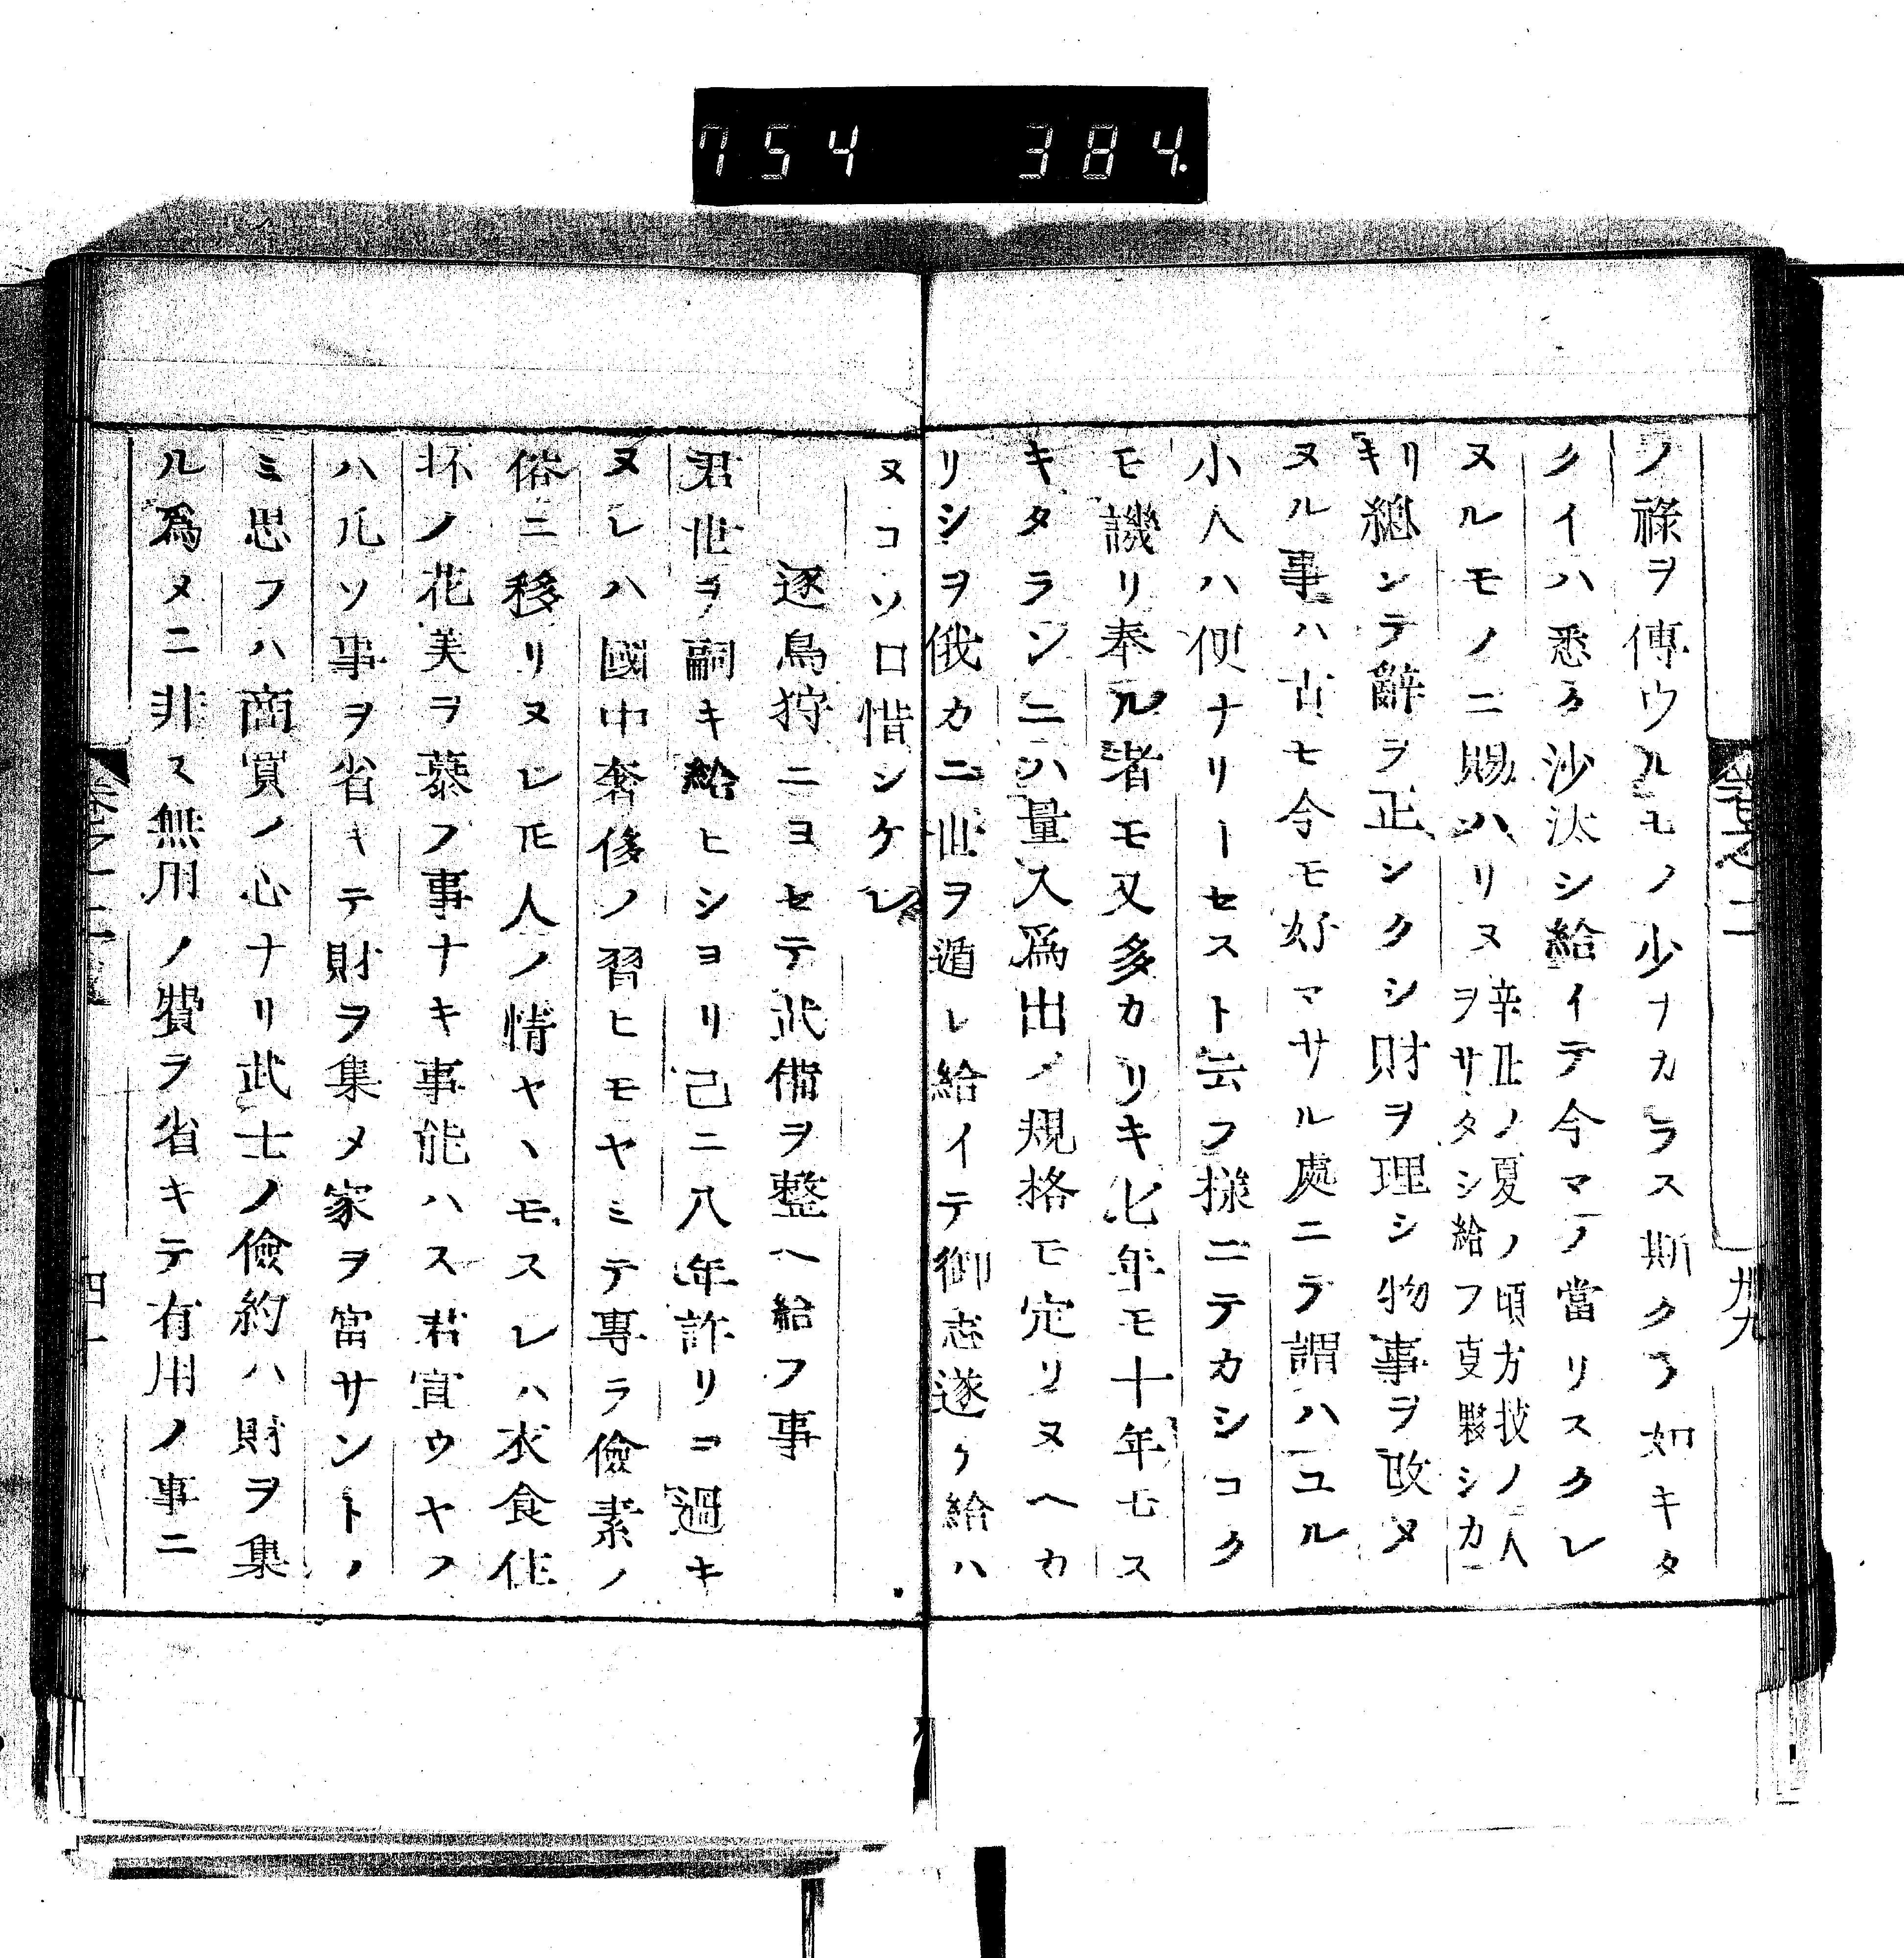 754 384.
巻之二
卅九
ノ祿ヲ傳ウルモノ少ヲカラス斯クノ如キタ
クイハ悉ク沙汰シ給イテ今マノ當リスクレ
ヌルモノニ賜ハリヌ辛丑ノ夏ノ頃方技ノ人
ヲサタシ給フ夏夥シカ
リキ總シテ辭ヲ正シクシ財ヲ理シ物事ヲ改メ
ヌル事ハ古モ今モ好マサル處ニテ謂ハユル
小人ハ便ナリーセスト云フ樣ニテカシコク
モ譏リ奉ル者モ又多カリキ七年モ十年モス
キタランニハ量入爲出ノ規格モ定リヌヘカ
リシヲ俄カニ世ヲ遁レ給イテ御志遂ケ給ハ
ヌコソ口惜シケレ
逐鳥狩ニヨセテ武備ヲ整ヘ給フ事
君世ヲ嗣キ給ヒショリ己ニ八年許リヲ過キ
ヌレハ國中奢侈ノ習ヒモヤミテ專ラ儉素ノ
俗ニ移リヌレ𪜈人ノ情ヤヽモスレハ衣食住
抔ノ花美ヲ慕フ事ナキ事能ハス君宣ウヤフ
ハ凡ソ事ヲ省キテ財ヲ集メ家ヲ富サントノ
ミ思フハ商賈ノ心ナリ武士ノ儉約ハ財ヲ集
ル爲メニ非ス無用ノ費ヲ省キテ有用ノ事ニ
巻之二
四十